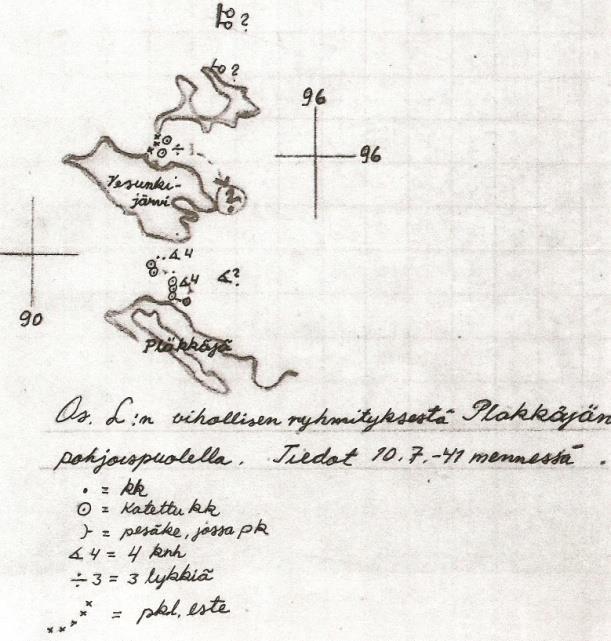 ?
?
96
96
Vesunki-
järvi
2
4
4
?
90
Pläkköjä
Os. L:n vihollisen ryhmityksestä Pläkköjän
pohjoispuolella. Tiedot 10.7.-41 mennessä.
• = kk
⊙ = Katettu kk
= pesäke, jossa pk
∡ 4 = 4 knh
÷ 3 = 3 lykkiä
= pkl. este